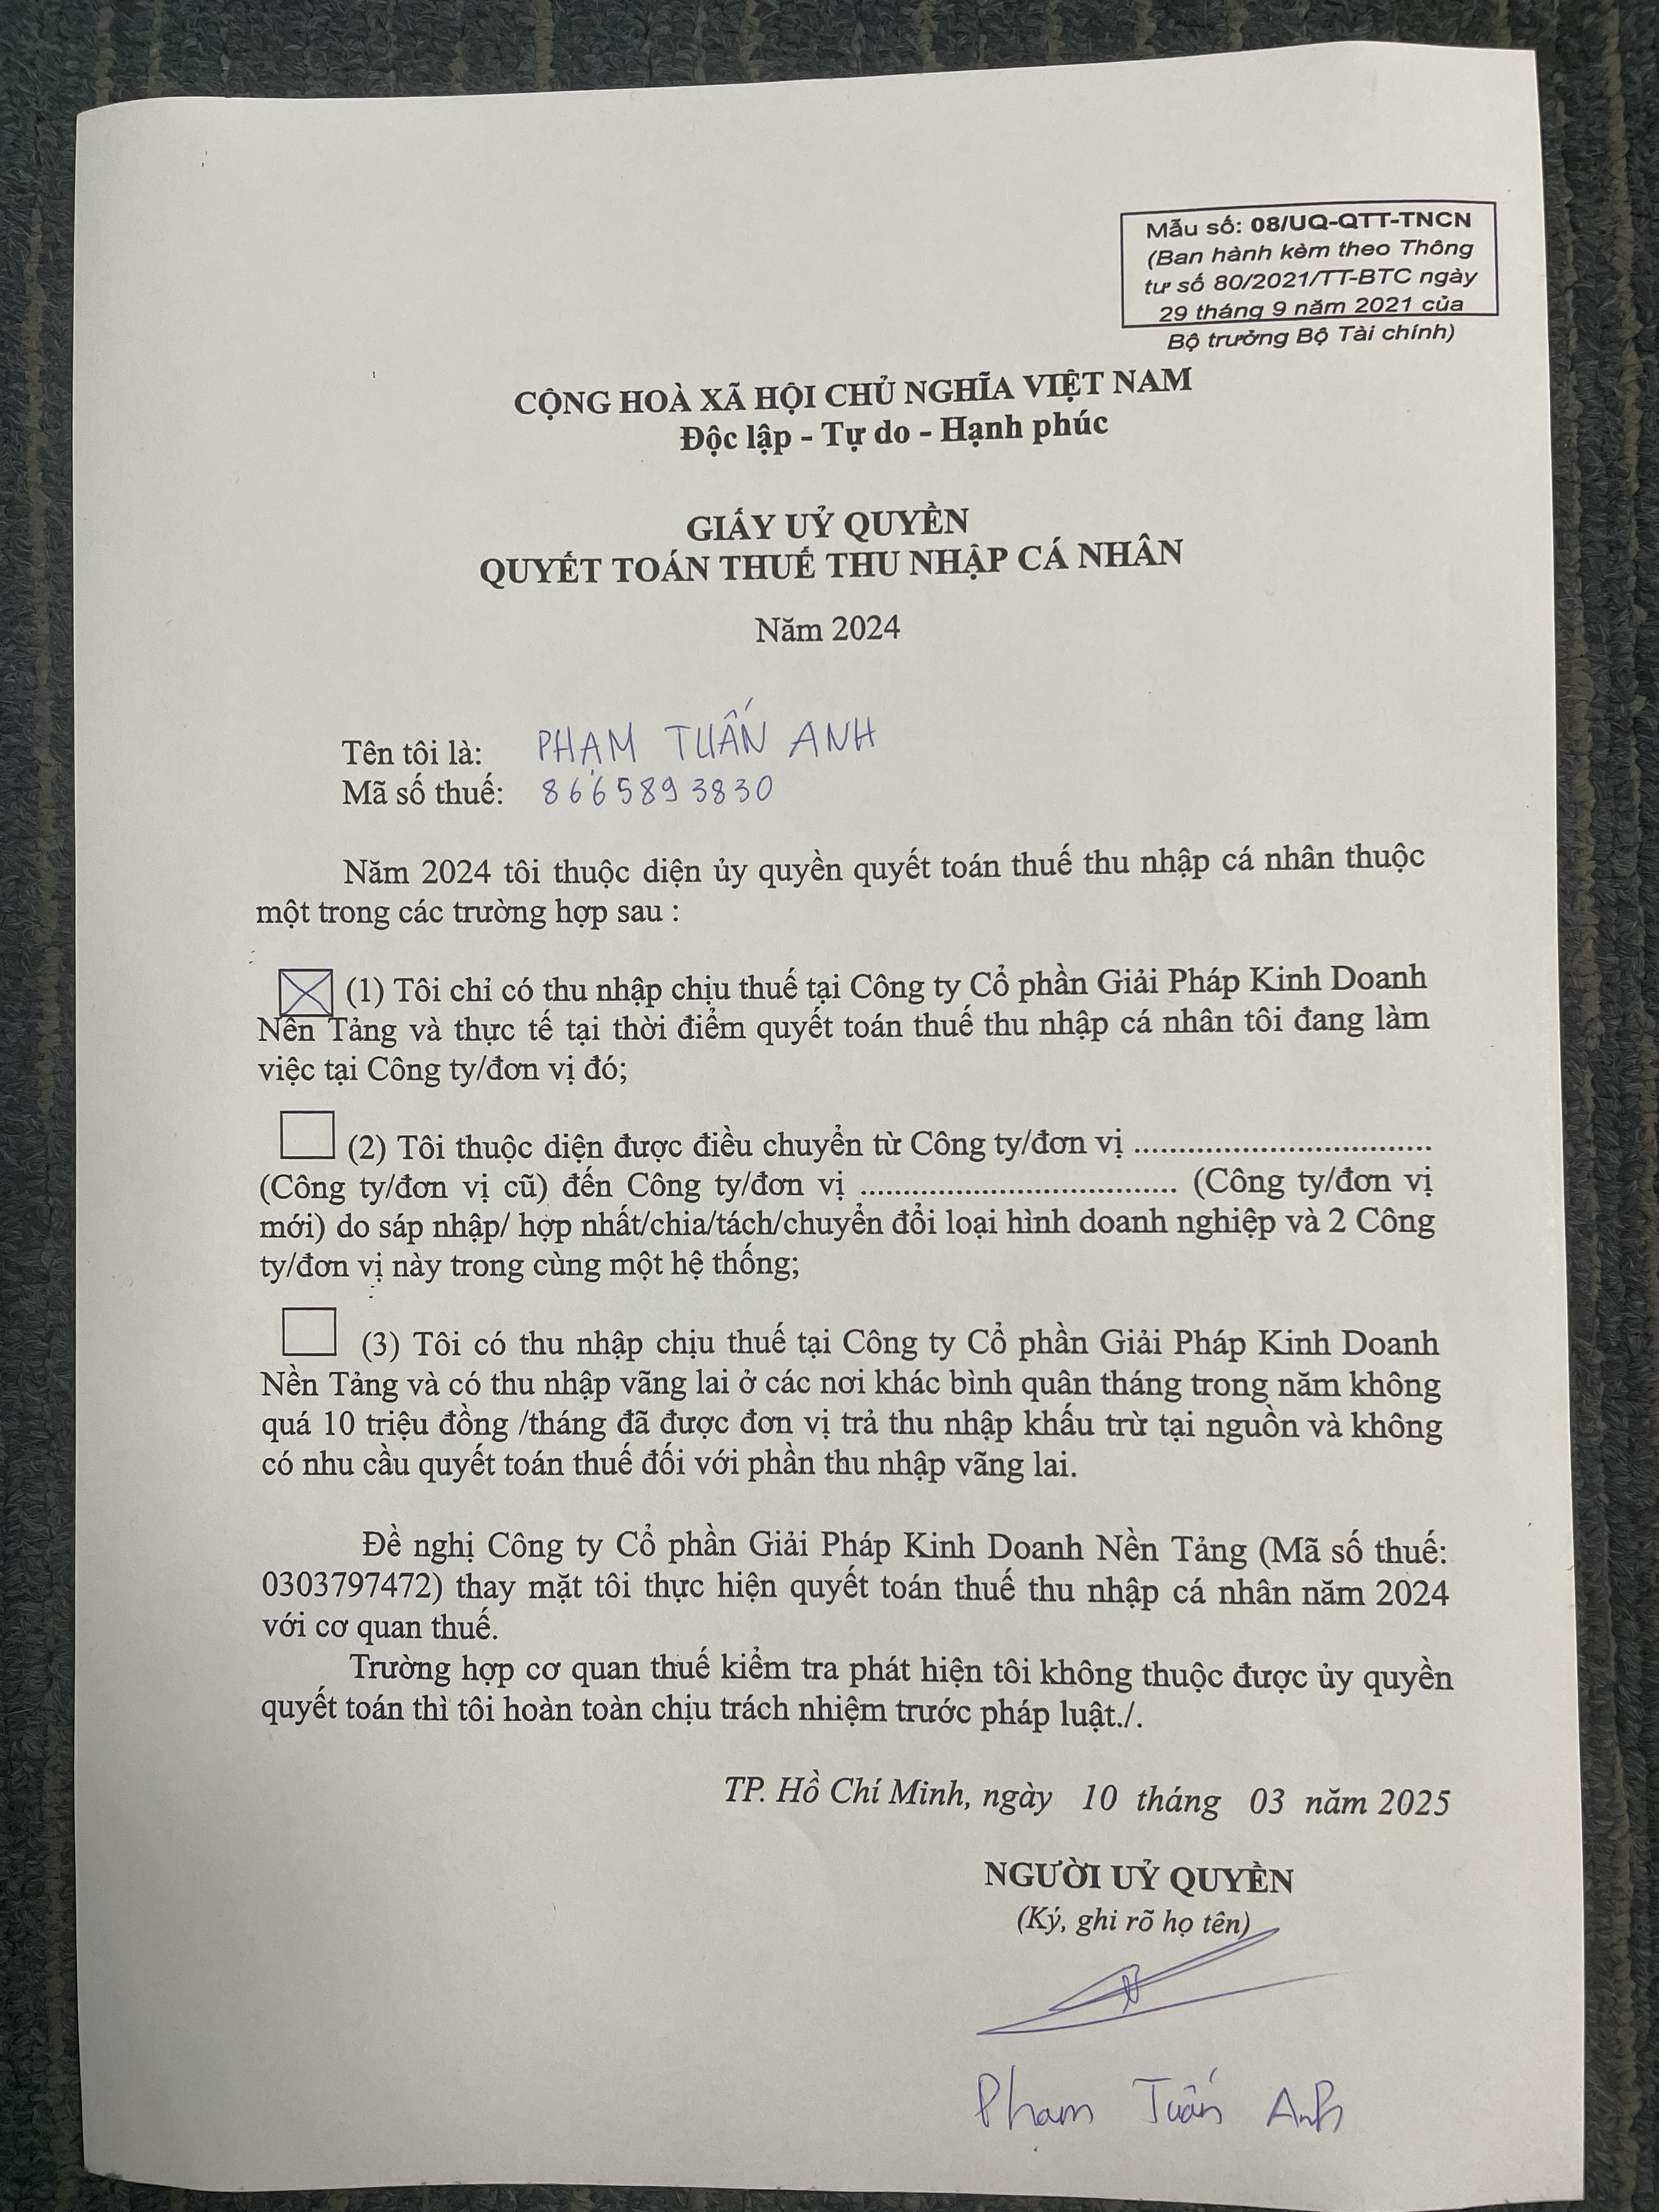 Mẫu số: 08/UQ-QTT-TNCN
(Ban hành kèm theo Thông
tư số 80/2021/TT-BTC ngày
29 tháng 9 năm 2021 của
Bộ trưởng Bộ Tài chính)
CỘNG HOÀ XÃ HỘI CHỦ NGHĨA VIỆT NAM
Độc lập - Tự do - Hạnh phúc
GIẤY UỶ QUYỀN
QUYẾT TOÁN THUẾ THU NHẬP CÁ NHÂN
Năm 2024
Tên tôi là: PHẠM TUẤN ANH
Mã số thuế: 8665893830
Năm 2024 tôi thuộc diện ủy quyền quyết toán thuế thu nhập cá nhân thuộc
một trong các trường hợp sau :
(1) Tôi chỉ có thu nhập chịu thuế tại Công ty Cổ phần Giải Pháp Kinh Doanh
Nền Tảng và thực tế tại thời điểm quyết toán thuế thu nhập cá nhân tôi đang làm
việc tại Công ty/đơn vị đó;
(2) Tôi thuộc diện được điều chuyển từ Công ty/đơn vị ..................................
(Công ty/đơn vị cũ) đến Công ty/đơn vị ..................................... (Công ty/đơn vị
mới) do sáp nhập/ hợp nhất/chia/tách/chuyển đổi loại hình doanh nghiệp và 2 Công
ty/đơn vị này trong cùng một hệ thống;
(3) Tôi có thu nhập chịu thuế tại Công ty Cổ phần Giải Pháp Kinh Doanh
Nền Tảng và có thu nhập vãng lai ở các nơi khác bình quân tháng trong năm không
quá 10 triệu đồng /tháng đã được đơn vị trả thu nhập khấu trừ tại nguồn và không
có nhu cầu quyết toán thuế đối với phần thu nhập vãng lai.
Đề nghị Công ty Cổ phần Giải Pháp Kinh Doanh Nền Tảng (Mã số thuế:
0303797472) thay mặt tôi thực hiện quyết toán thuế thu nhập cá nhân năm 2024
với cơ quan thuế.
Trường hợp cơ quan thuế kiểm tra phát hiện tôi không thuộc được ủy quyền
quyết toán thì tôi hoàn toàn chịu trách nhiệm trước pháp luật./.
TP. Hồ Chí Minh, ngày 10 tháng 03 năm 2025
NGƯỜI UỶ QUYỀN
(Ký, ghi rõ họ tên)
Phạm Tuấn Anh